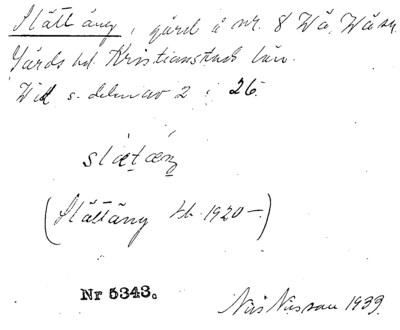 Slättäng, gård å nr. 8 Vä, Vä sn.
Gärds hd. Kristianstads län.
s. delen av 2 : 26.
slætæŋ
(Slättäng Jb. 1920–)
Nr 5343.
Nils Nilsson 1939